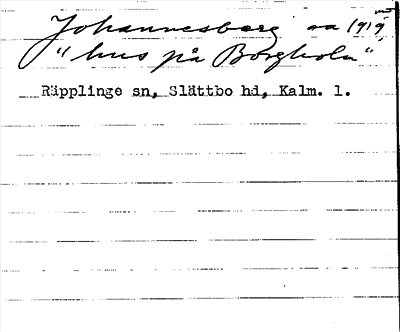 Johannesberg oa 1919
"hus på Borgholm"
Räpplinge sn, Slättbo hd, Kalm. l.